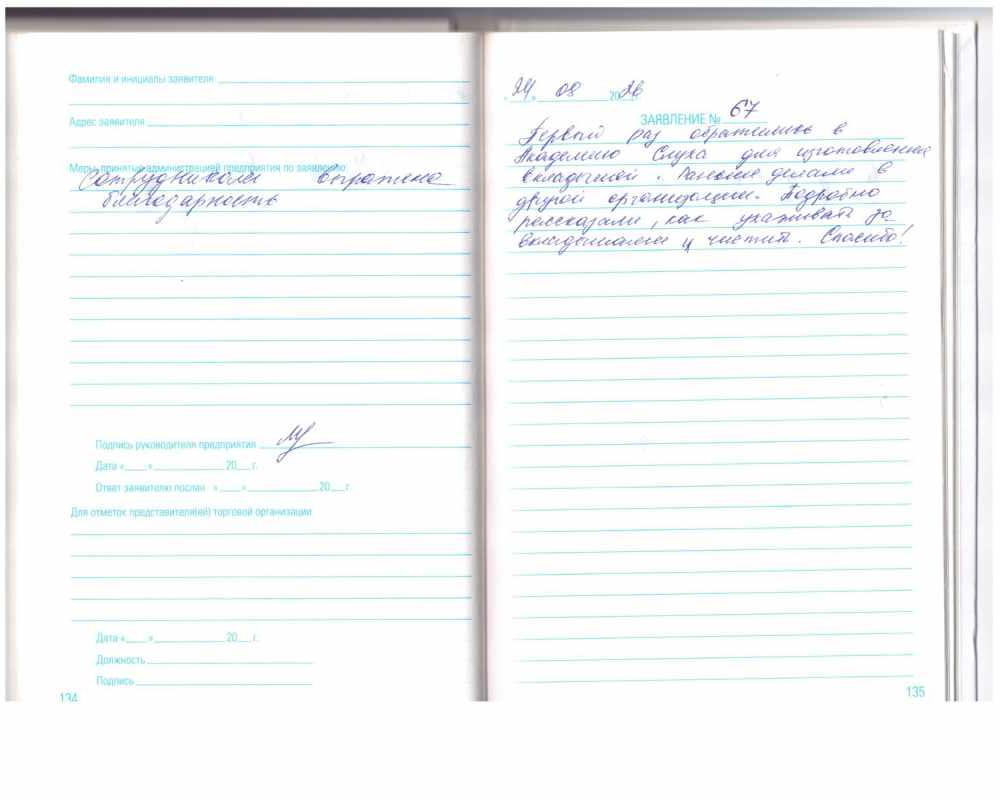 Фамилия и инициалы заявителя
Адрес заявителя
Меры принятые администрацией предприятия по заявлению
Сотрудникам выражена
благодарность
Подпись руководителя предприятия
Дата «___»__________20__г.
Ответ заявителю послан «___»__________20__г
Для отметок представителя(ей) торговой организации
Дата «___»__________20__г.
Должность
Подпись
134
«24» 08 2026
ЗАЯВЛЕНИЕ № 67
Первый раз обратились в
Академию Слуха для изготовления
вкладышей. Раньше делали в
другой организации. Подробно
рассказали, как ухаживать за
вкладышами и чистить. Спасибо!
135